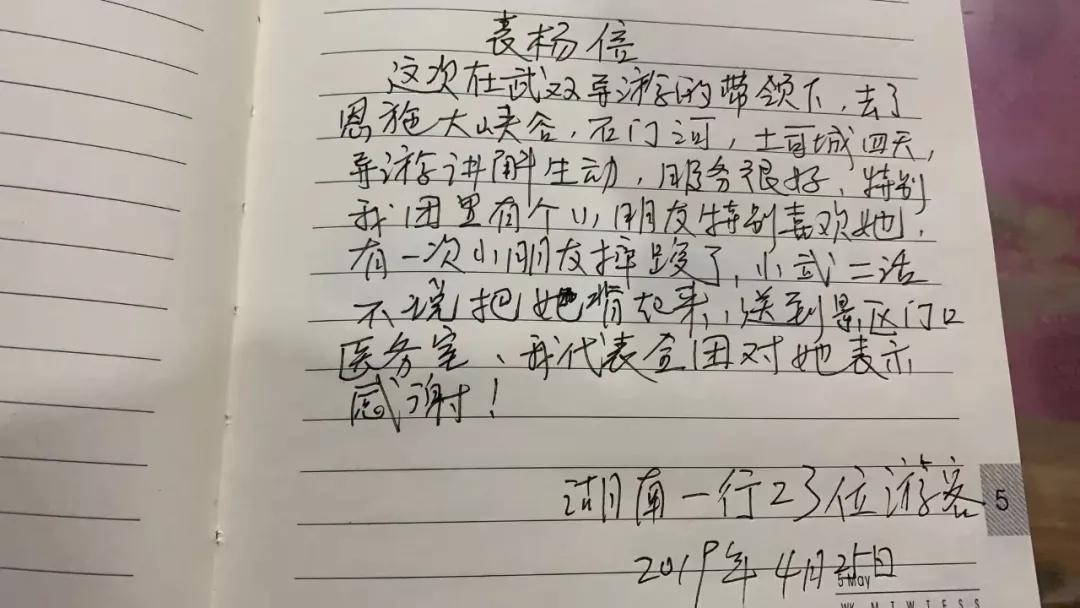 表杨信
这次在武双导游的带领下，去了
恩施大峡谷，石门河，土司城四天，
导游讲解生动，服务很好，特别
我团里有个小朋友特别喜欢她，
有一次小朋友摔跤了，小武二话
不说把她背起来，送到景区门口
医务室、我代表全团对她表示
感谢！
湖南一行23位游客
2019年4月25日
5
5 May
WK M T W T F S S